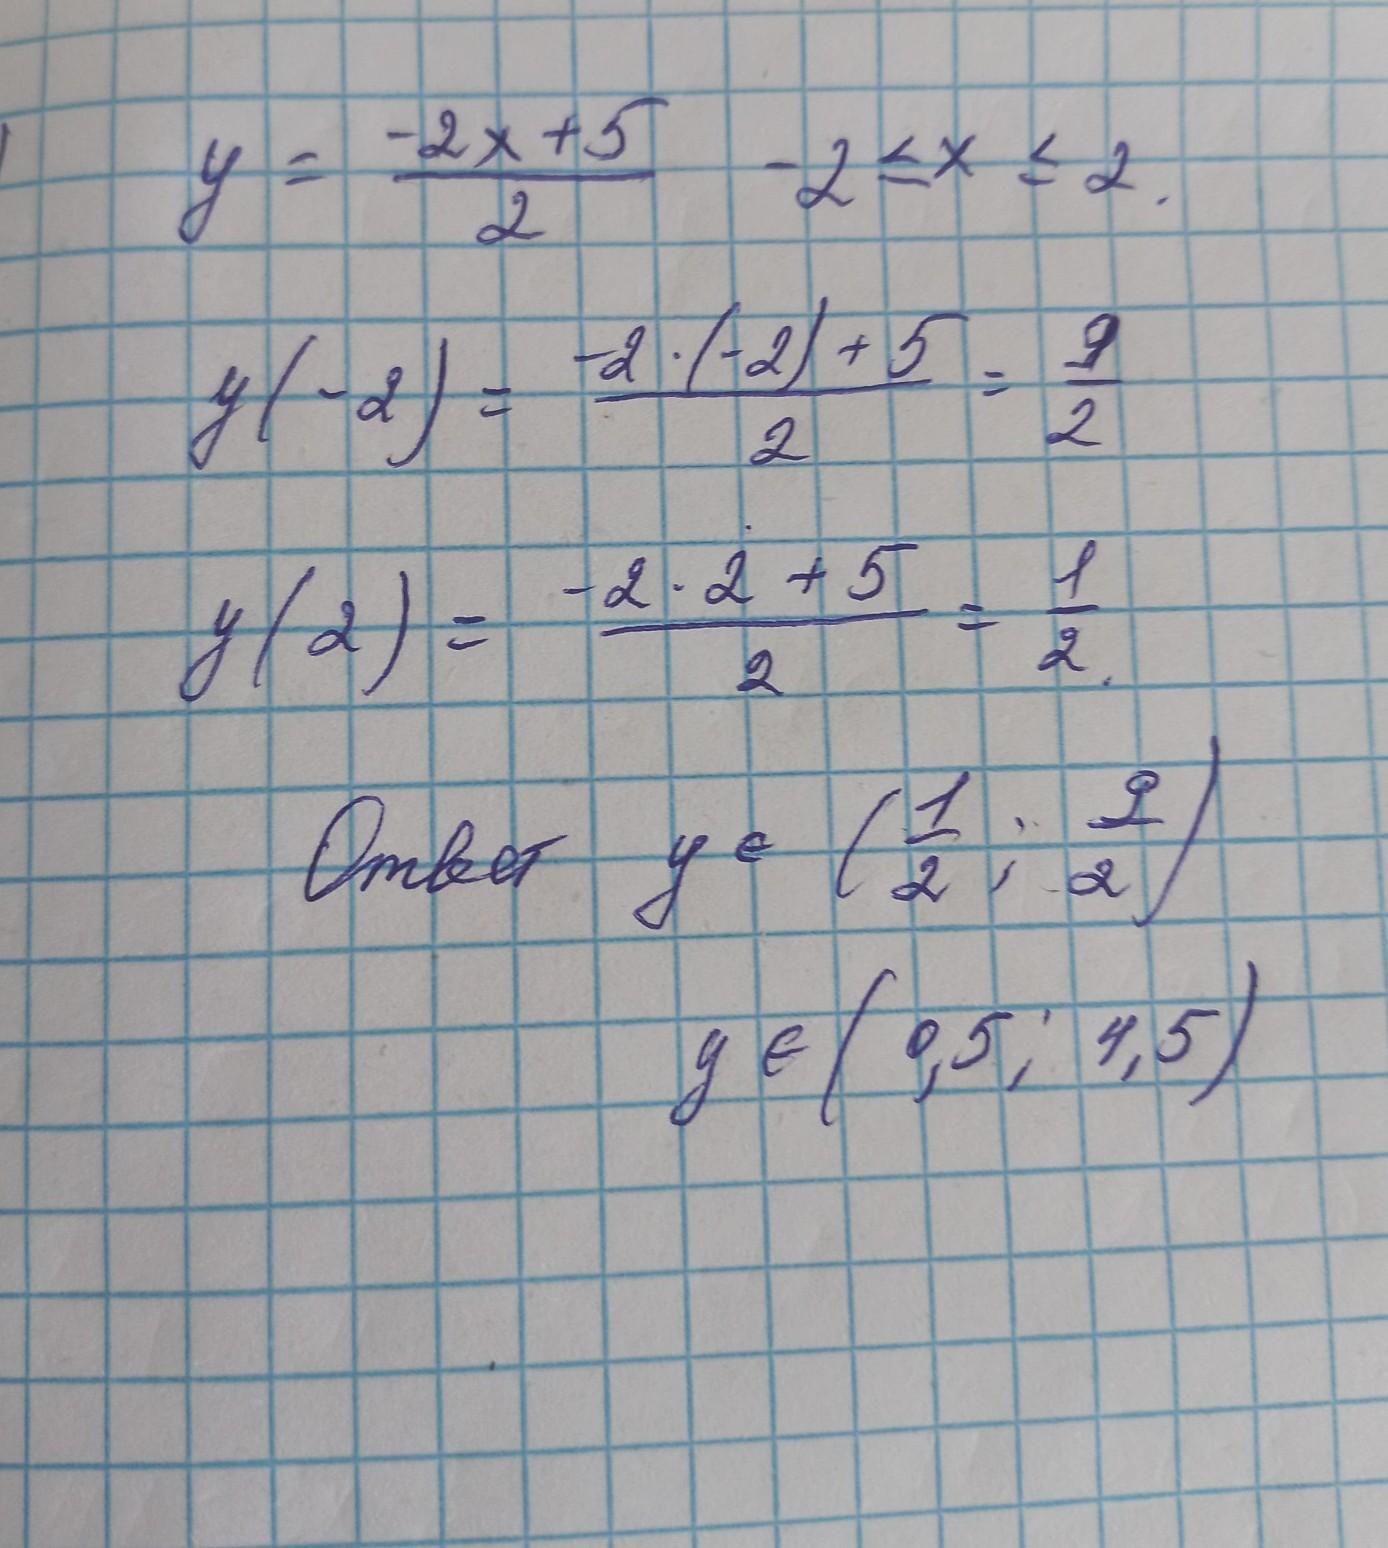 y = (-2x+5)/2   -2 ≤ x ≤ 2.
y(-2) = (-2·(-2)+5)/2 = 9/2
y(2) = (-2·2+5)/2 = 1/2.
Ответ y ∈ (1/2; 9/2)
y ∈ (0,5; 4,5)